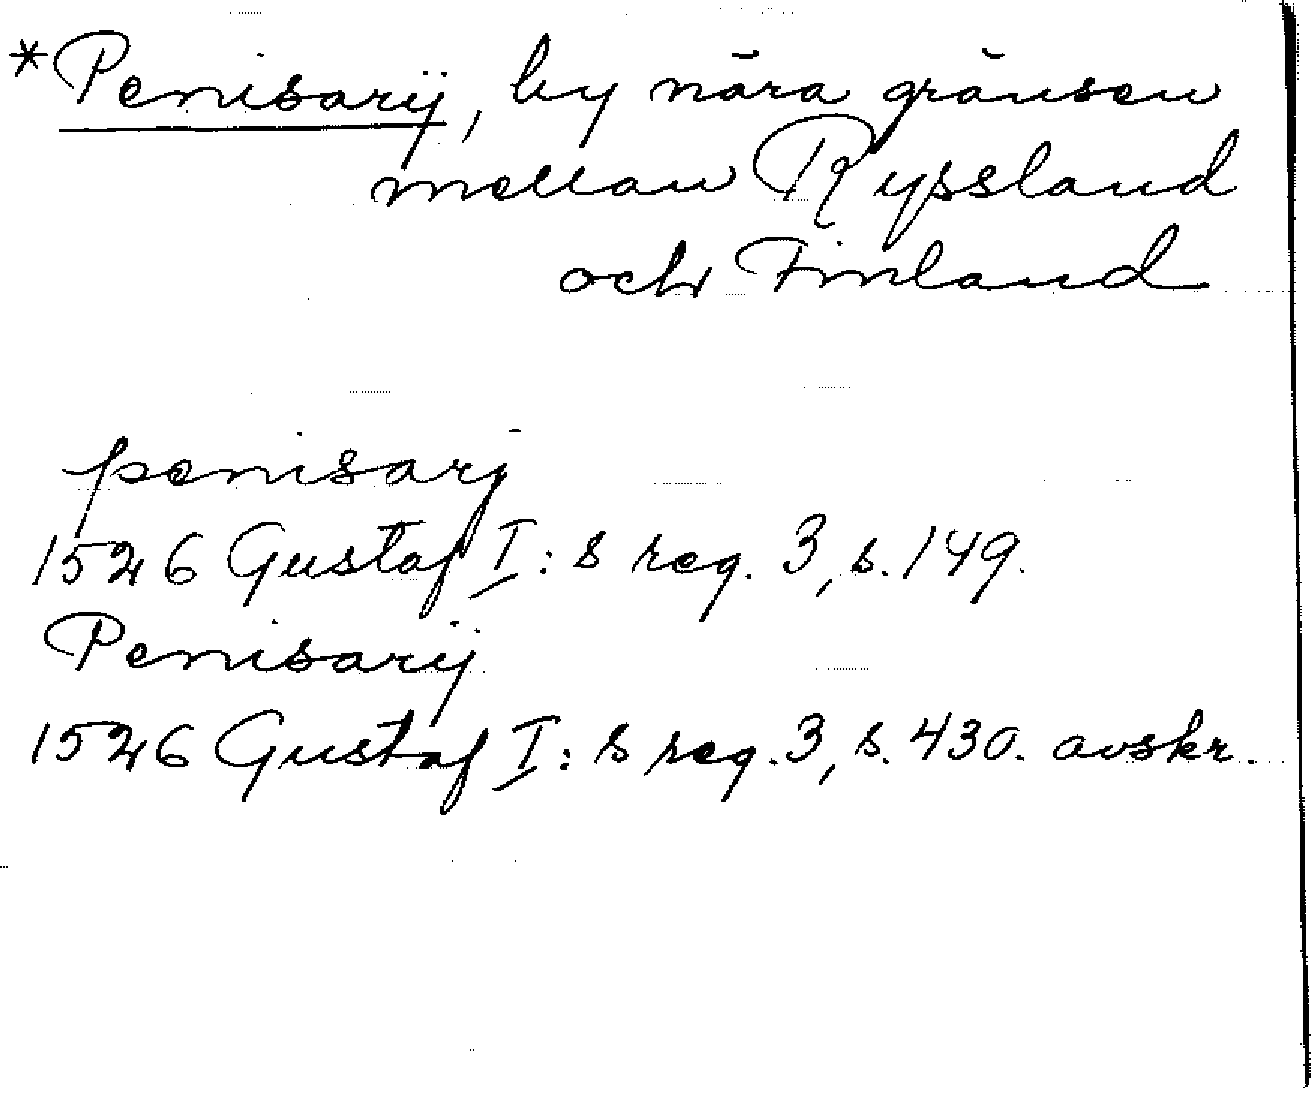 *Penisarij, by nära gränsen
mellan Ryssland
och Finland
penisarj
1526 Gustaf I:s reg. 3, s. 149.
Penisarij
1526 Gustaf I:s reg. 3, s. 430. avskr.